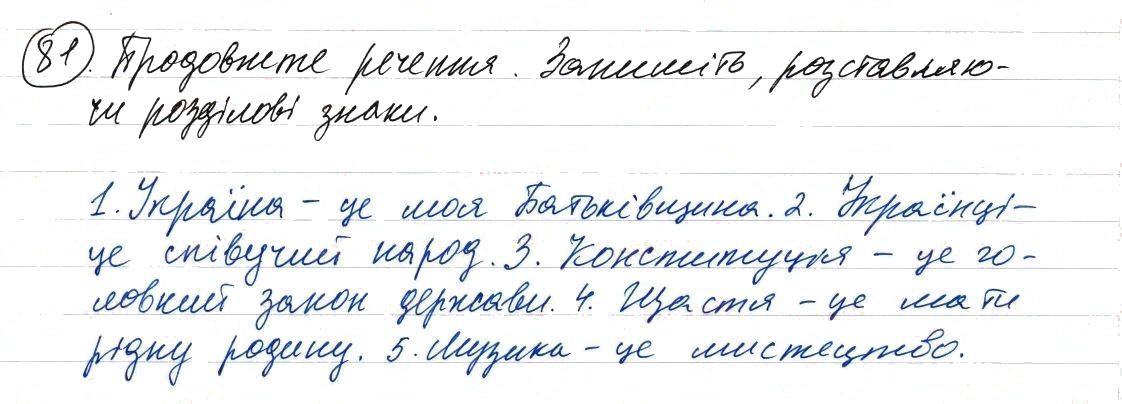 81. Продовжте речення. Запишіть, розставляю-
чи розділові знаки.
1. Україна – це моя Батьківщина. 2. Українці –
це співучий народ. 3. Конституція – це го-
ловний закон держави. 4. Щастя – це мати
рідну родину. 5. Музика – це мистецтво.